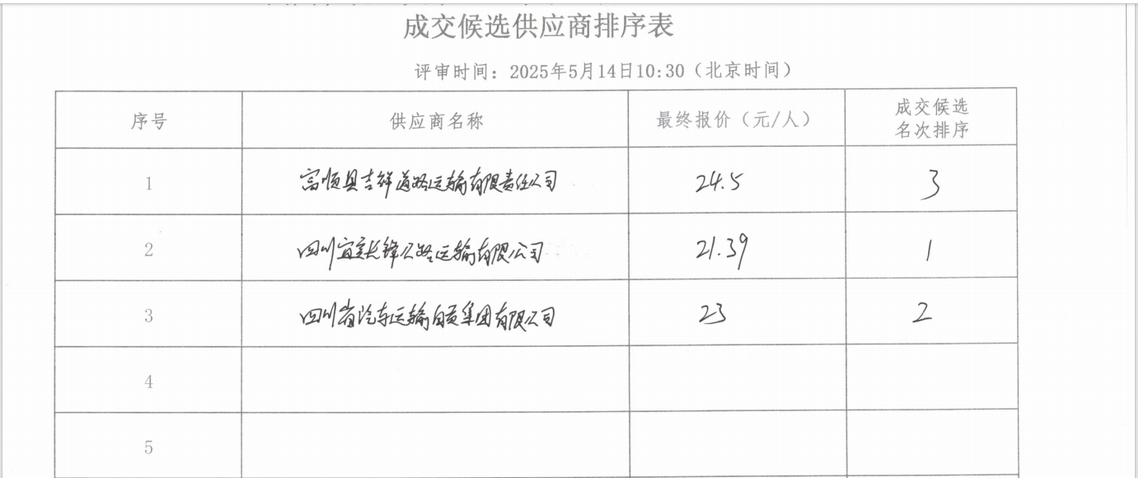 成交候选供应商排序表
评审时间：2025年5月14日10:30（北京时间）
序号 供应商名称 最终报价（元/人） 成交候选
名次排序
1 富顺县吉祥道路运输有限责任公司 24.5 3
2 四川宜宾长锋公路运输有限公司 21.39 1
3 四川省汽车运输自贡集团有限公司 23 2
4
5